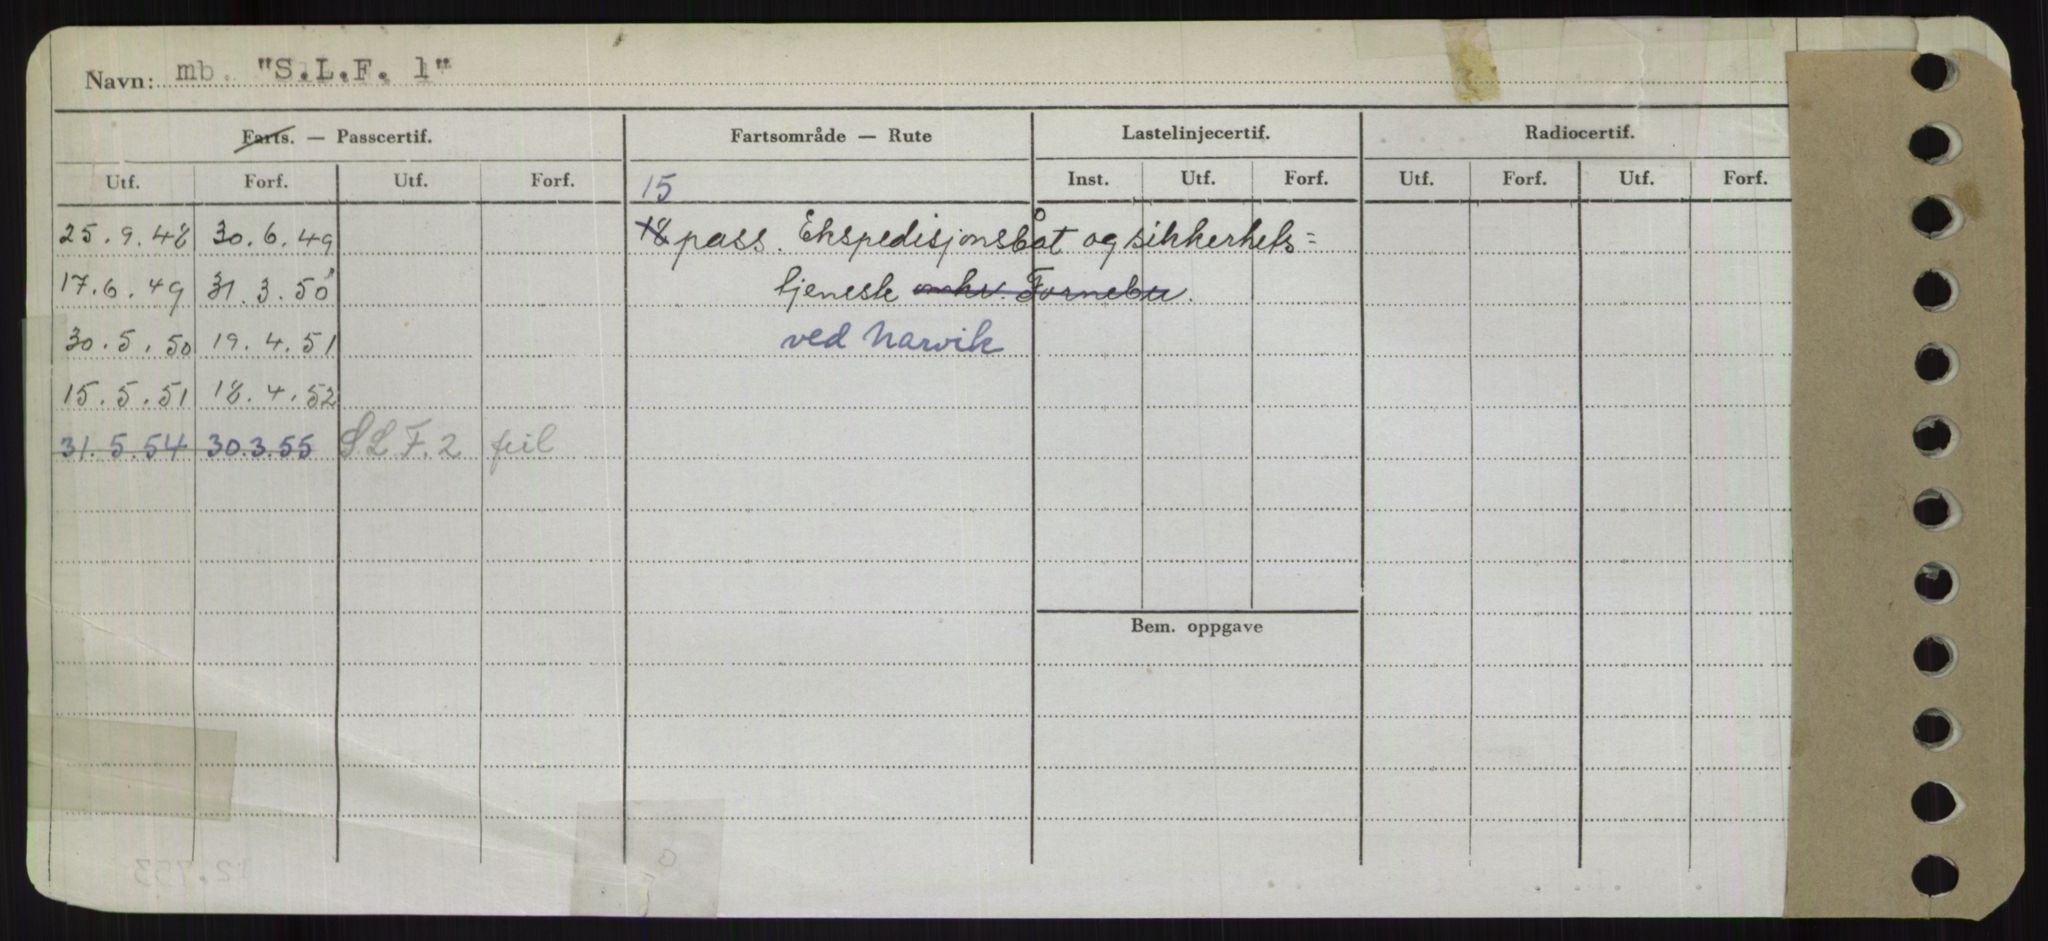 Navn: mb. "S.L.F. 1"
Farts. — Passcertif. Fartsområde — Rute Lastelinjecertif. Radiocertif.
Utf. Forf. Utf. Forf. 15 Inst. Utf. Forf. Utf. Forf. Utf. Forf.
25.9.48 30.6.49 18 pass. Ekspedisjonsbåt og sikkerhets=
17.6.49 31.3.50 tjeneste omkr. Fornebu.
30.5.50 19.4.51 ved Narvik
15.5.51 18.4.52
31.5.54 30.3.55 S.L.F. 2 feil
Bem. oppgave
12.753